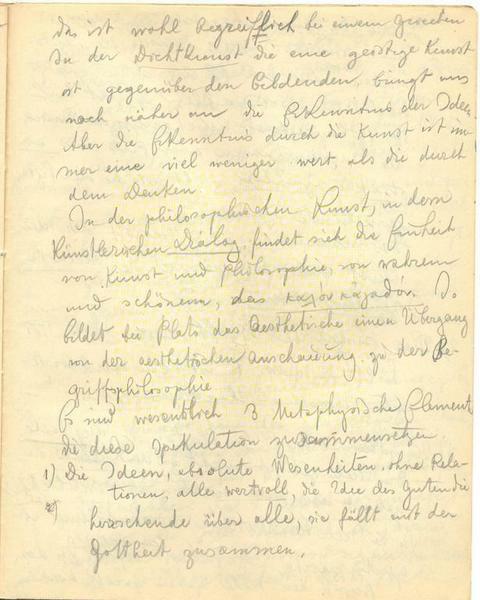 das ist wohl begreiflich bei einem Griechen
In der Dichtkunst die eine geistige Kunst
ist gegenüber den bildenden, bringt uns
noch näher an die Erkenntnis der Ideen.
Aber die Erkenntnis durch die Kunst ist im-
mer eine viel weniger wert, als die durch
dem Denken
In der philosophischen Kunst, in dem
künstlerischen Dialog, findet sich die Einheit
von Kunst und Philosophie, von wahrem
und schönem, das καλόν κἀγαθόν. So
bildet bei Plato das Aesthetische einen Übergang
von der aesthetischen Anschauung zu der Be-
griffsphilosophie
Es sind wesentlich 3 Metaphysische Element
die diese Spekulation zusammensetzen
1) Die Ideen, absolute Wesenheiten, ohne Rela-
tionen, alle wertvoll, die Idee des Guten die
herrschende über alle, sie fällt mit der
Gottheit zusammen.